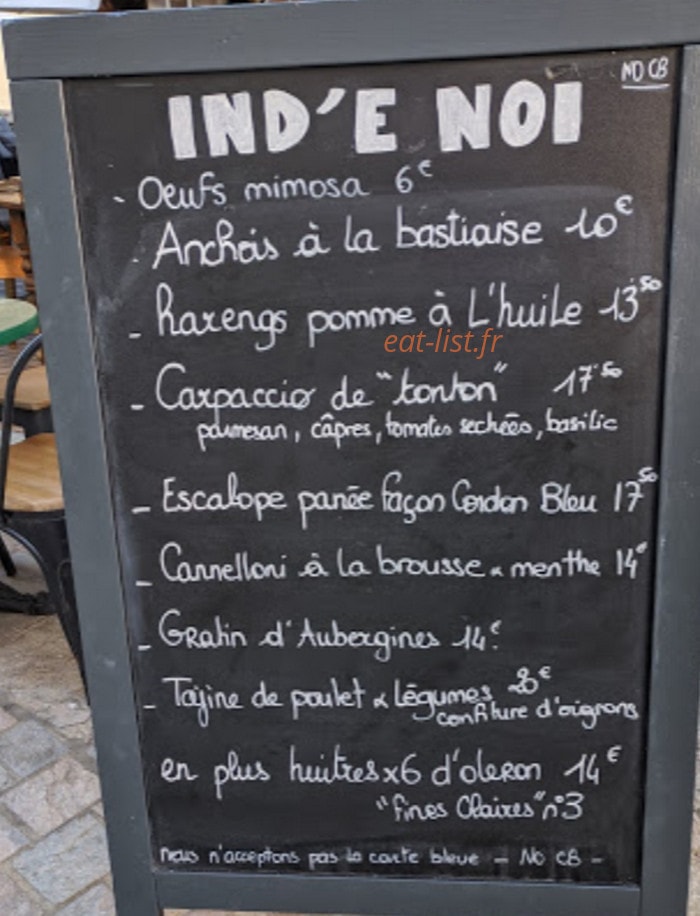 NO CB
IND'E NOI
- Oeufs mimosa 6€
- Anchois à la bastiaise 10€
- harengs pomme à L'huile 13'50
eat-list.fr
- Carpaccio de "tonton" 17'50
parmesan, câpres, tomates sechées, basilic
- Escalope panée façon Cordon Bleu 17'50
- Cannelloni à la brousse & menthe 14€
- Gratin d'Aubergines 14€
- Tajine de poulet & Légumes 20€
confiture d'oignons
en plus huitres x6 d'oleron 14€
"fines Claires" n°3
nous n'acceptons pas la carte bleue - NO CB -